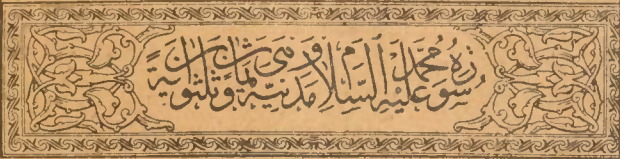 سُورَةُ مُحَمَّدٍ عَلَيْهِ السَّلَامُ مَدَنِيَّةٌ وَهِيَ ثَمَانٍ وَثَلٰثُونَ اٰيَةً